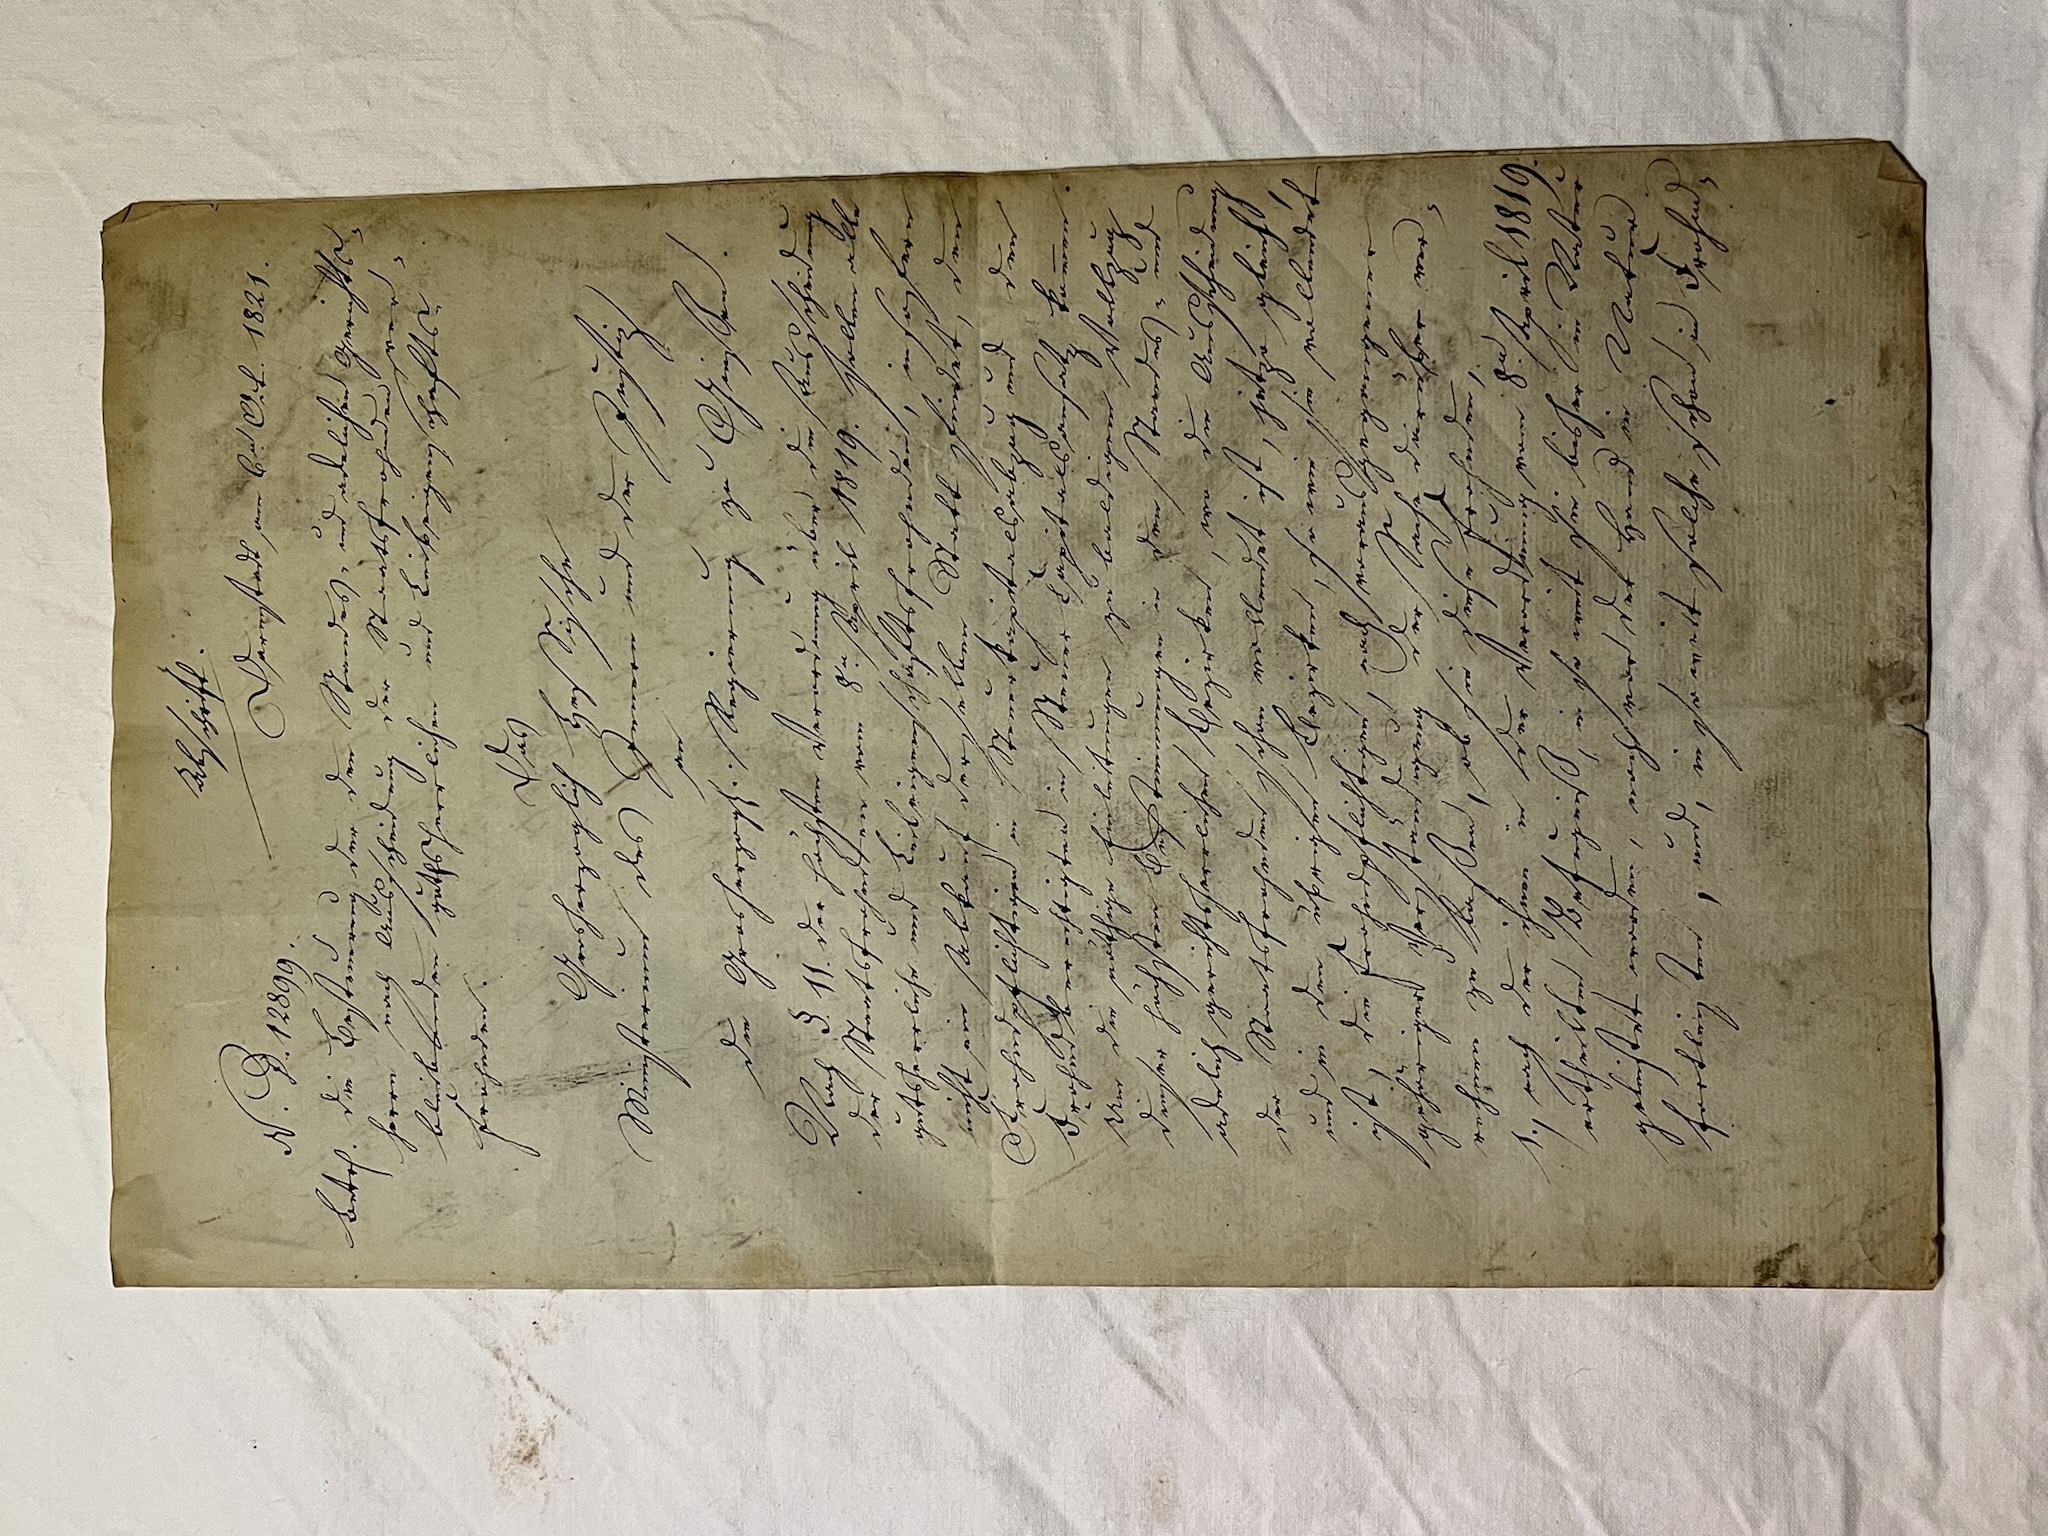 Abschrift.
Darmstadt am 6n. Oct. 1821.
N. D. 12899.
Betrf. die Besteuerung der den Standes- und adelichen Gerichts-
herrn nach Ausscheidung der Staatsfrohnden ver-
bleibenden gutsherrlichen und Leibeigenschafts-
frohnden.
Das
Grosherzoglich Hessische
Ministerium des Innern und der Justiz
an
die Grosherzogl. Regierung zu Giessen.
Nach §. 11. der höchsten Verordnung über die Ausscheidung
der Staatsfrohnden vom 8n. April 1819. sollen alle
gutsherrliche und Leibeigenschaftsfrohnden, in sofern
nicht ein Abkauf derselben Statt findet, den
Frohndpflichtigen in Steuerkapitalsabzug und den
Frohndberechtigten in Steuer Capitalsansatz kom̄en.
Um die nöthige Einleitungen zu baldigem Vollzug
dieser höchsten Bestimmungen in den Standes- und
adelich gerichtsherrlichen Bezirken, wo die Ausscheidung
der Staatsfrohnden schon vollendet ist, jetzo gleich,
und in den übrigen Bezirken, so wie sie vollendet
ist, die Frohndpflichtigen, nach vorausgegangener
gehöriger Verständigung der Sache darüber ver-
nehmen zu laßen, ob sie diese Frohnden,
1., nach der ihnen in der Verordnung vom 8n. April 1819.
ertheilten Befugniß, in so weit sie bisher in Natur
geleistet worden, noch vor der Hand in Natur
fortleisten, und, in so weit solche schon in Frohnd-